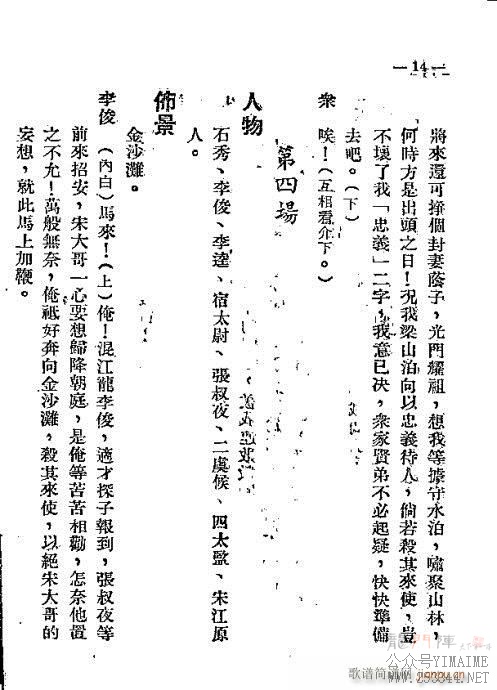 —14—
將來還可掙個封妻蔭子，光門耀祖，想我等據守水泊，嘯聚山林，
何時方是出頭之日！況我梁山泊向以忠義待人，倘若殺其來使，豈
不壞了我「忠義」二字，我意已决，衆家賢弟不必起疑，快快準備
去吧。（下）
衆　唉！（互相看介下。）
第四場
人物　石秀、李俊、李逵、宿太尉、張叔夜、二虞候、四太監、宋江原
人。
佈景　金沙灘。
李俊　（內白）馬來！（上）俺！混江龍李俊，適才探子報到，張叔夜等
前來招安，宋大哥一心要想歸降朝庭，是俺等苦苦相勸，怎奈他置
之不允！萬般無奈，俺祗好奔向金沙灘，殺其來使，以絕宋大哥的
妄想，就此馬上加鞭。
龍門陣
公众号YIMAIME
歌谱简谱网